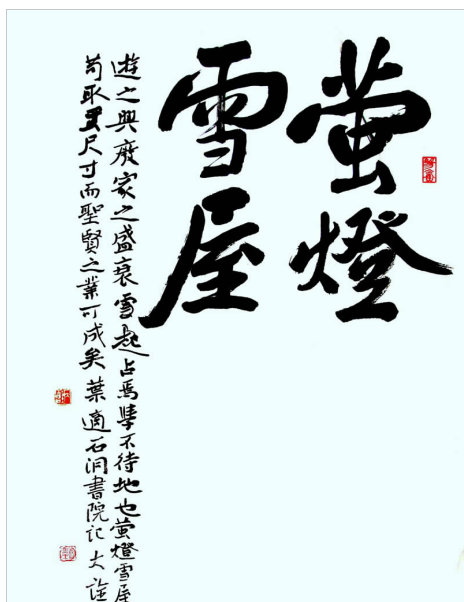 萤燈
雪屋
遊之興廢家之盛衰雪起占焉學不待地也萤燈雪屋
苟取置尺寸而聖賢之業可成矣葉適石洞書院記大詮